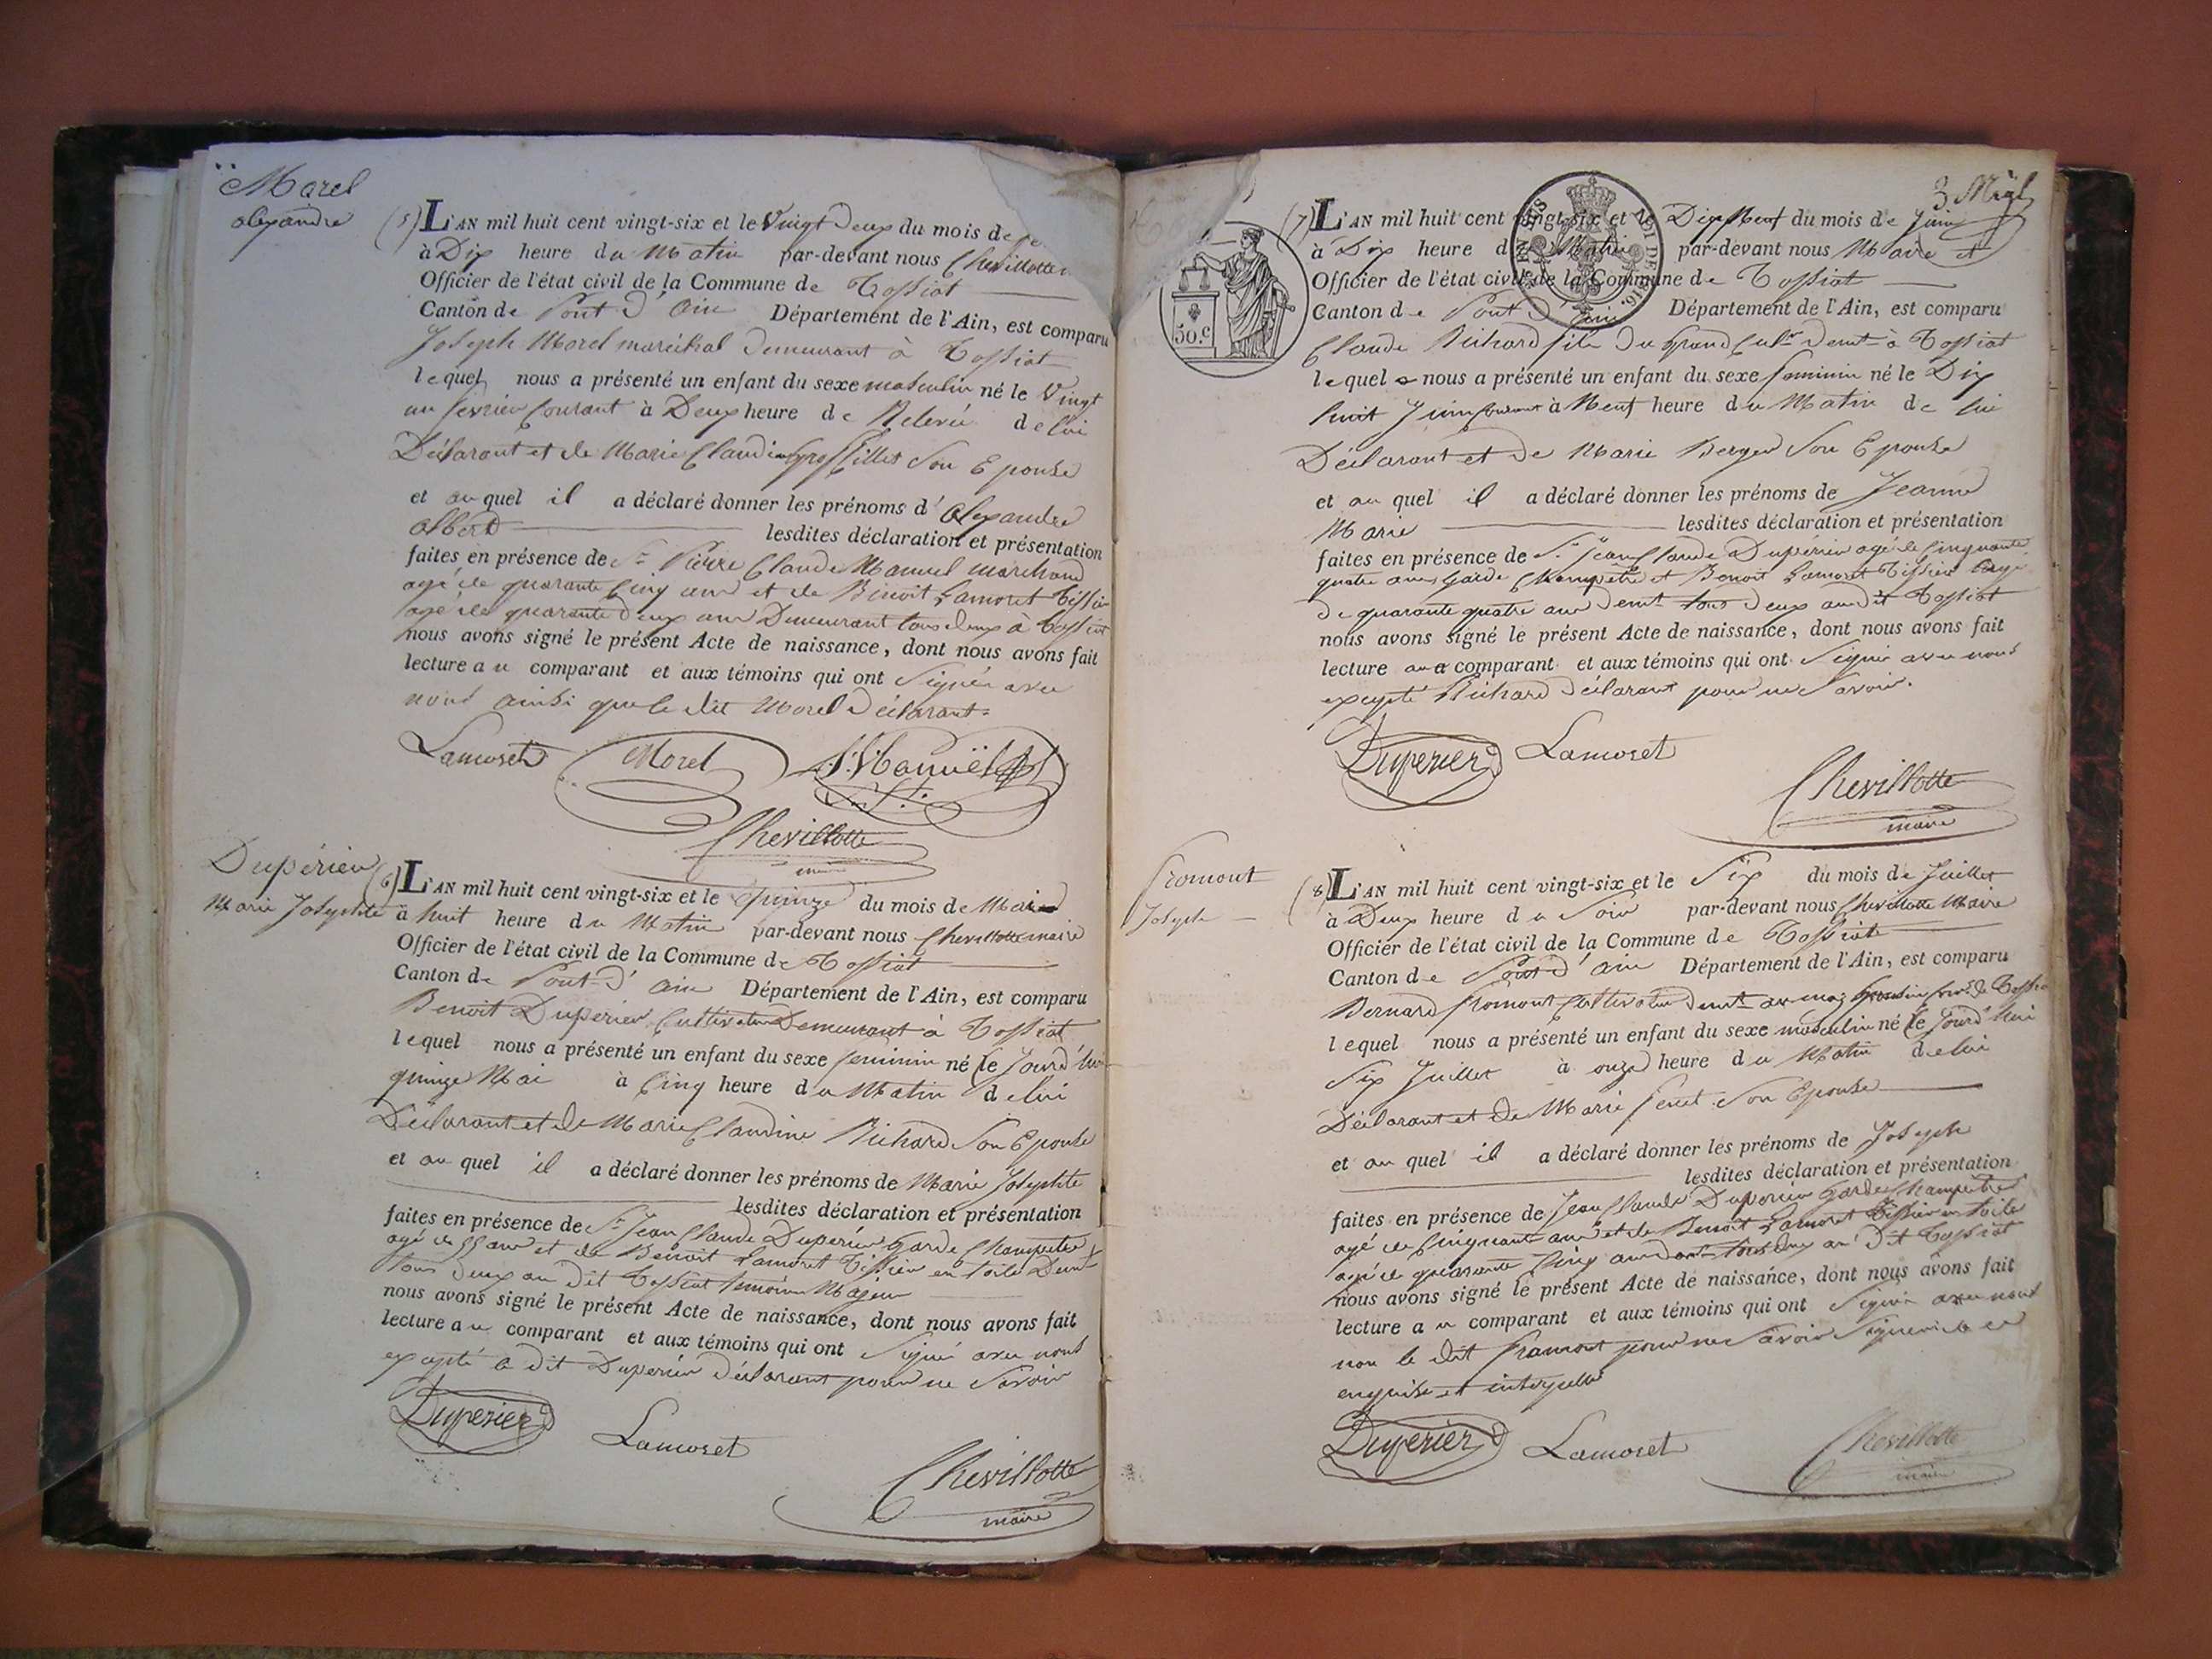 Morel
alexandre
(5) L'AN mil huit cent vingt-six et le Vingt Deux du mois de
à Dix heure du Matin par-devant nous Chevillotte
Officier de l'état civil de la Commune de Tossiat
Canton de Pont d'ain Département de l'Ain, est comparu
Joseph Morel maréchal Demeurant à Tossiat
lequel nous a présenté un enfant du sexe masculin né le Vingt
un fevrier Courant à Deux heure de Relevée de lui
Déclarant et de Marie Claudine Son Epouse
et au quel il a déclaré donner les prénoms d'Alexandre
albert lesdites déclaration et présentation
faites en présence de Sr Pierre Claude Manuel marchand
agé de quarante Cinq ans et de Benoit Lamoret Tissier
agé de quarante deux ans Demeurant tous deux à Tossiat
nous avons signé le présent Acte de naissance, dont nous avons fait
lecture au comparant et aux témoins qui ont Signés avec
nous ainsi que le dit Morel Déclarant.
Lamoret Morel Manuël
Chevillotte
maire
Dupérier
Marie Josephte
(6) L'AN mil huit cent vingt-six et le Quinze du mois de Mai
à huit heure du Matin par-devant nous Chevillotte maire
Officier de l'état civil de la Commune de Tossiat
Canton de Pont-d'ain Département de l'Ain, est comparu
Benoit Dupérier Cultivateur Demeurant à Tossiat
lequel nous a présenté un enfant du sexe feminin né Ce Jourd'hui
quinze Mai à Cinq heure du Matin de lui
Déclarant et de Marie Claudine Richard Son Epouse
et au quel il a déclaré donner les prénoms de Marie Josephte
lesdites déclaration et présentation
faites en présence de Sr Jean Claude Dupérier Garde Champetre
agé de 55 ans et de Benoit Lamoret Tissier en toile Demt
tous deux au dit Tossiat temoins Majeur
nous avons signé le présent Acte de naissance, dont nous avons fait
lecture au comparant et aux témoins qui ont Signé avec nous
excepté le dit Dupérier Déclarant pour ne Savoir
Duperier Lamoret
Chevillotte
maire
50.c
3
(7) L'AN mil huit cent vingt-six et le Dix Neuf du mois de Juin
à Dix heure du Matin par-devant nous Maire et
Officier de l'état civil de la Commune de Tossiat
Canton de Pont d'ain Département de l'Ain, est comparu
Claude Richard fils du Grand Cultr Demt à Tossiat
lequel nous a présenté un enfant du sexe feminin né le Dix
huit Juin Courant à Neuf heure du Matin de lui
Déclarant et de Marie Berger Son Epouse
et au quel il a déclaré donner les prénoms de Jeanne
Marie lesdites déclaration et présentation
faites en présence de Sr Jean Claude Dupérier agé de Cinquante
quatre ans Garde Champetre et Benoit Lamoret Tissier agé
de quarante quatre ans Demt tous deux au dit Tossiat
nous avons signé le présent Acte de naissance, dont nous avons fait
lecture au comparant et aux témoins qui ont Signé avec nous
excepté Richard Déclarant pour ne Savoir.
Duperier Lamoret
Chevillotte
maire
Fromont
Joseph
(8) L'AN mil huit cent vingt-six et le Six du mois de Juillet
à Deux heure du Soir par-devant nous Chevillotte Maire
Officier de l'état civil de la Commune de Tossiat
Canton de Pont d'ain Département de l'Ain, est comparu
Bernard Fromont Cultivateur demt au de Tossiat
lequel nous a présenté un enfant du sexe masculin né Ce Jourd'hui
Six Juillet à onze heure du Matin de lui
Déclarant et de Marie Son Epouse
et au quel il a déclaré donner les prénoms de Joseph
lesdites déclaration et présentation
faites en présence de Jean Claude Dupérier Garde Champetre
agé de Cinquante ans et de Benoit Lamoret Tissier en toile
agé de quarante Cinq ans demt tous deux au dit Tossiat
nous avons signé le présent Acte de naissance, dont nous avons fait
lecture au comparant et aux témoins qui ont Signé avec nous
non le dit Fromont pour ne Savoir Signer de ce
enquise et interpellé
Duperier Lamoret
Chevillotte
maire